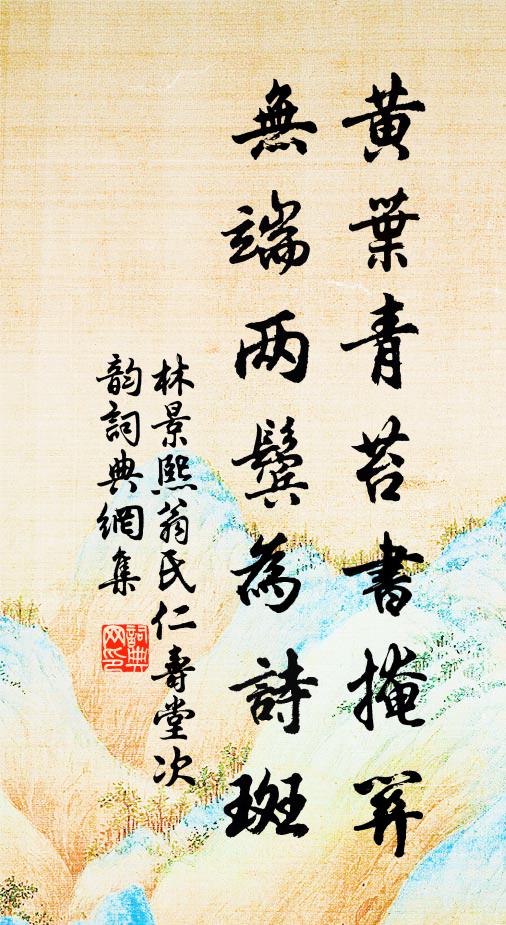 黃葉青苔書掩關
無端两鬢為詩斑
林景熙翁氏仁壽堂次
韵詞典網集
詞典
网印